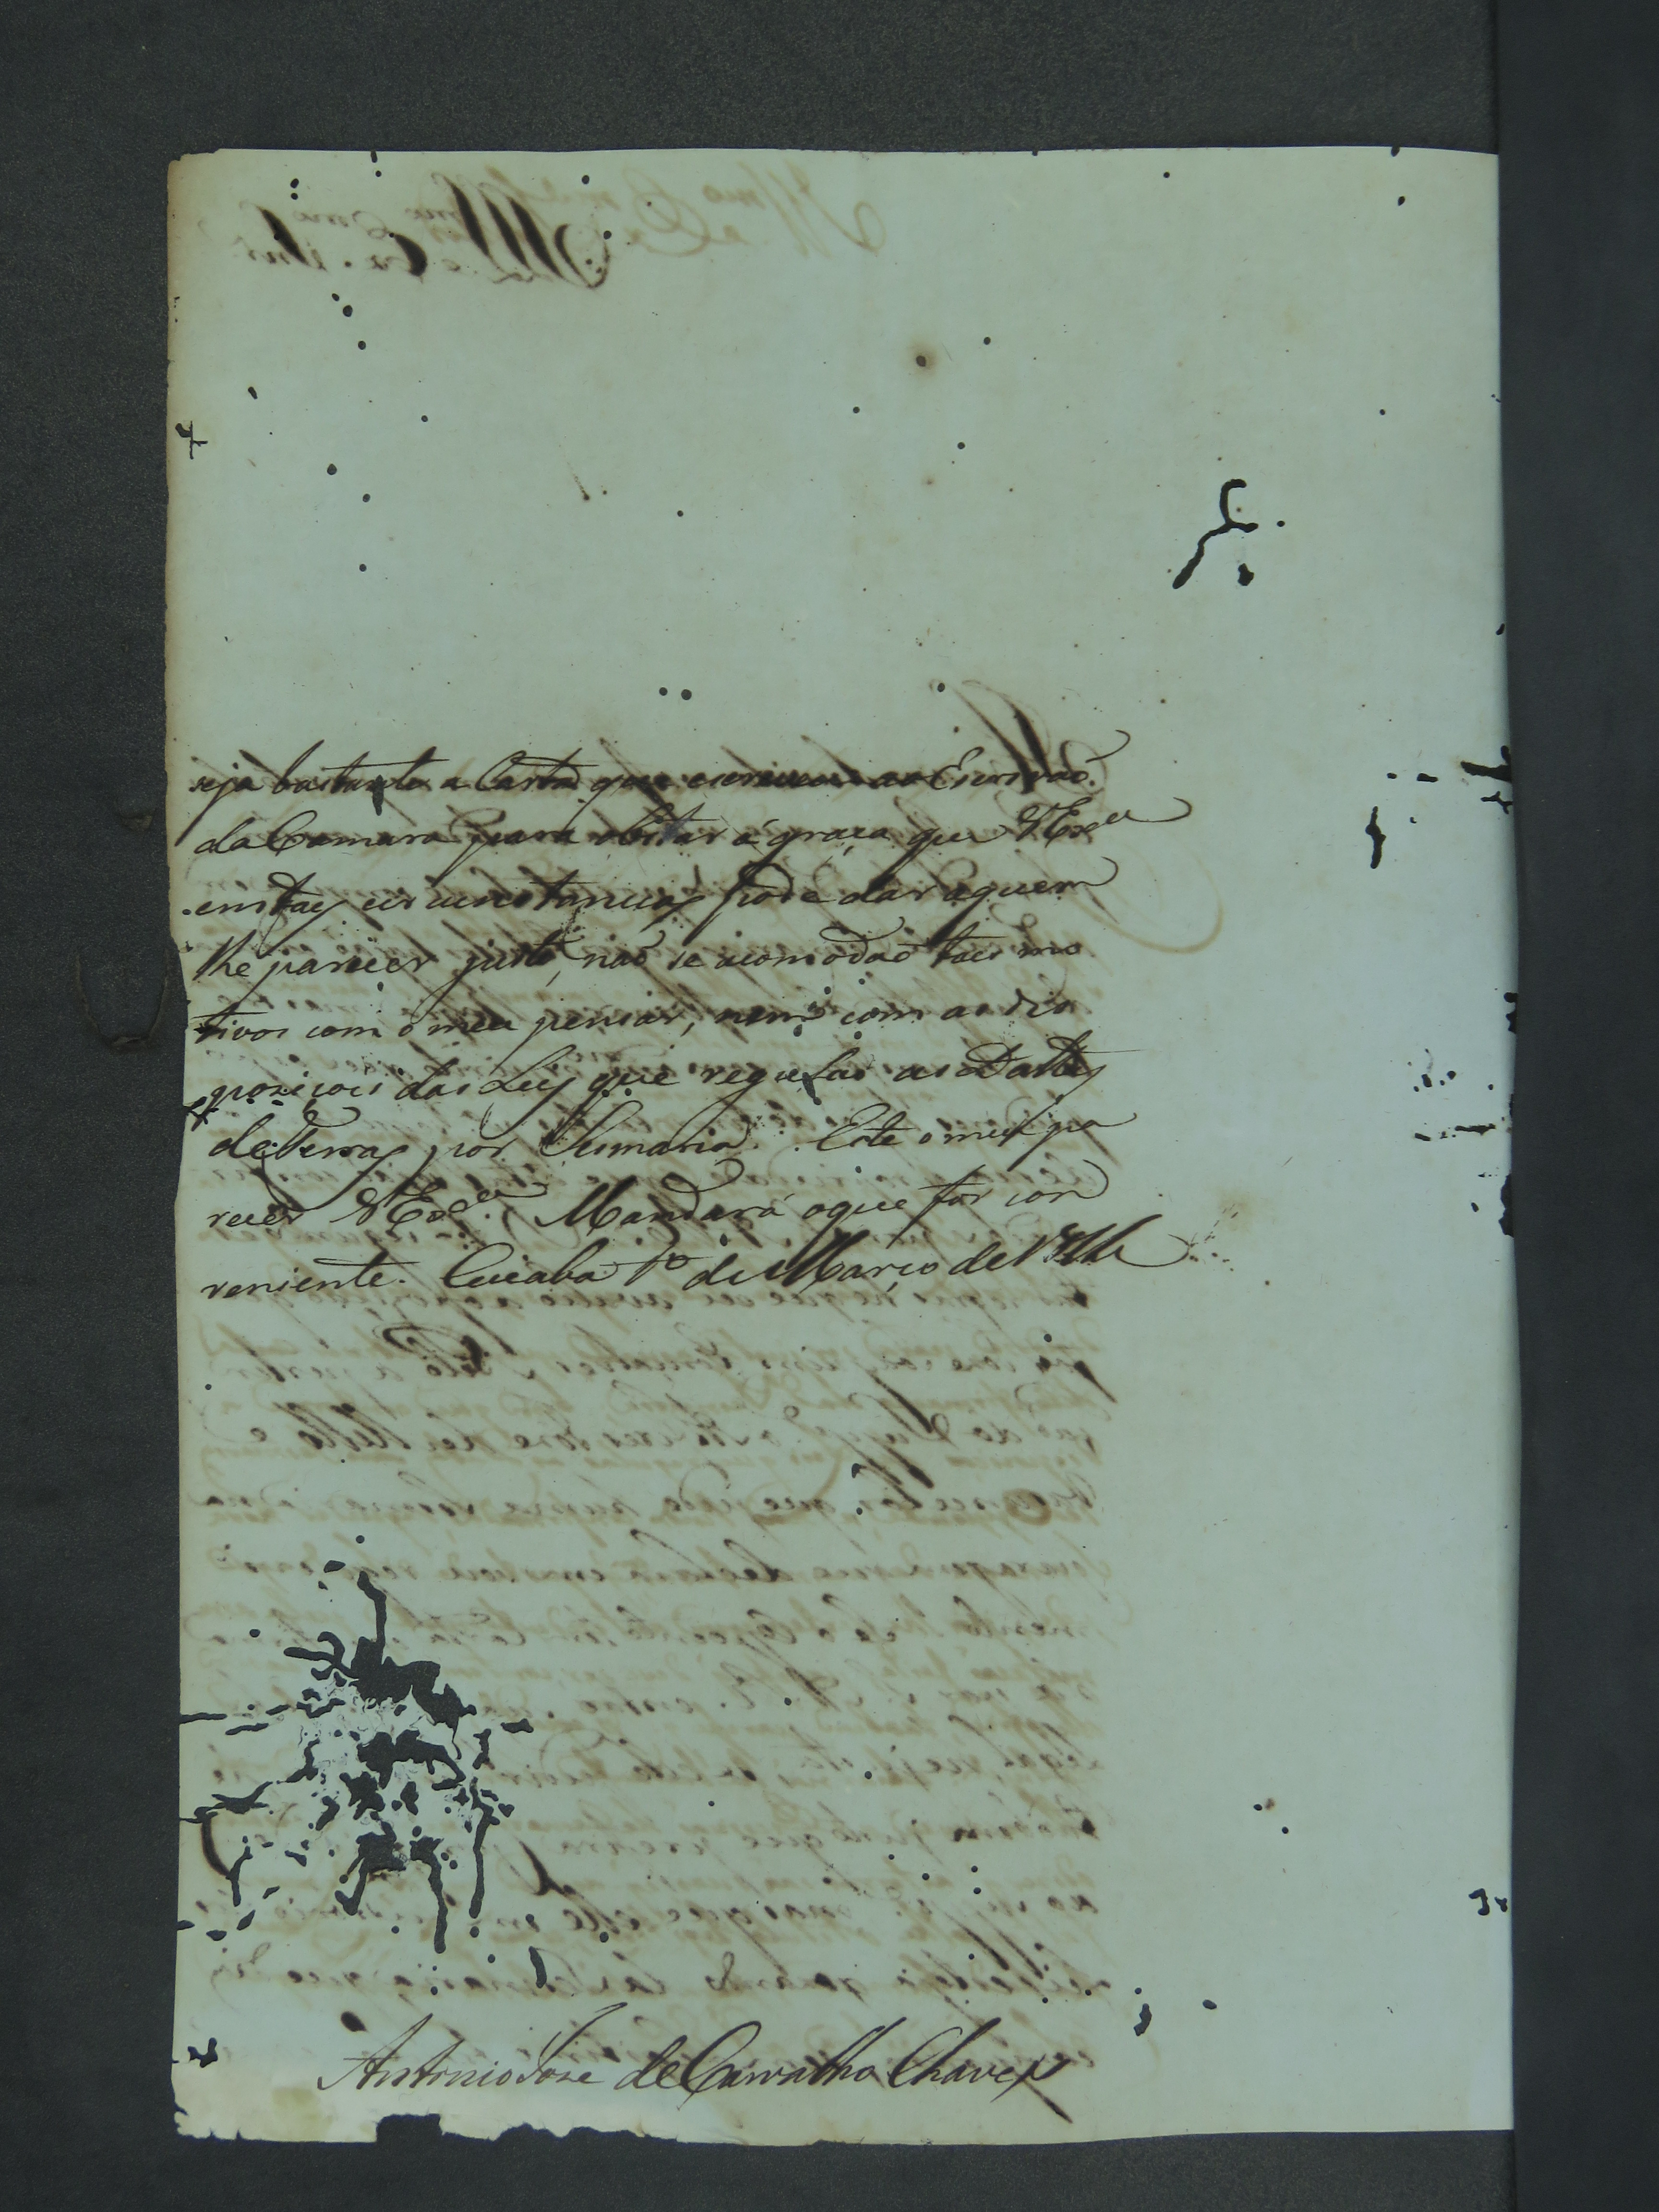 seja bastante a Carta que escreveu ao Escrivaõ
da Camara para obstar á graça que VExcia
em taes circunstancias pode dar aquem
lhe parecer justo, naõ se acomodaõ taes mo
tivos com o meu pensar, nem com as dis
poziçoes das Leys que regulaõ as Dattas
de terras por Sesmaria. Este o meu pa
recer VExcia. Mandará oque for con
veniente. Cuiaba 1º de Março de
Antonio Jose de Carvalho Chaves